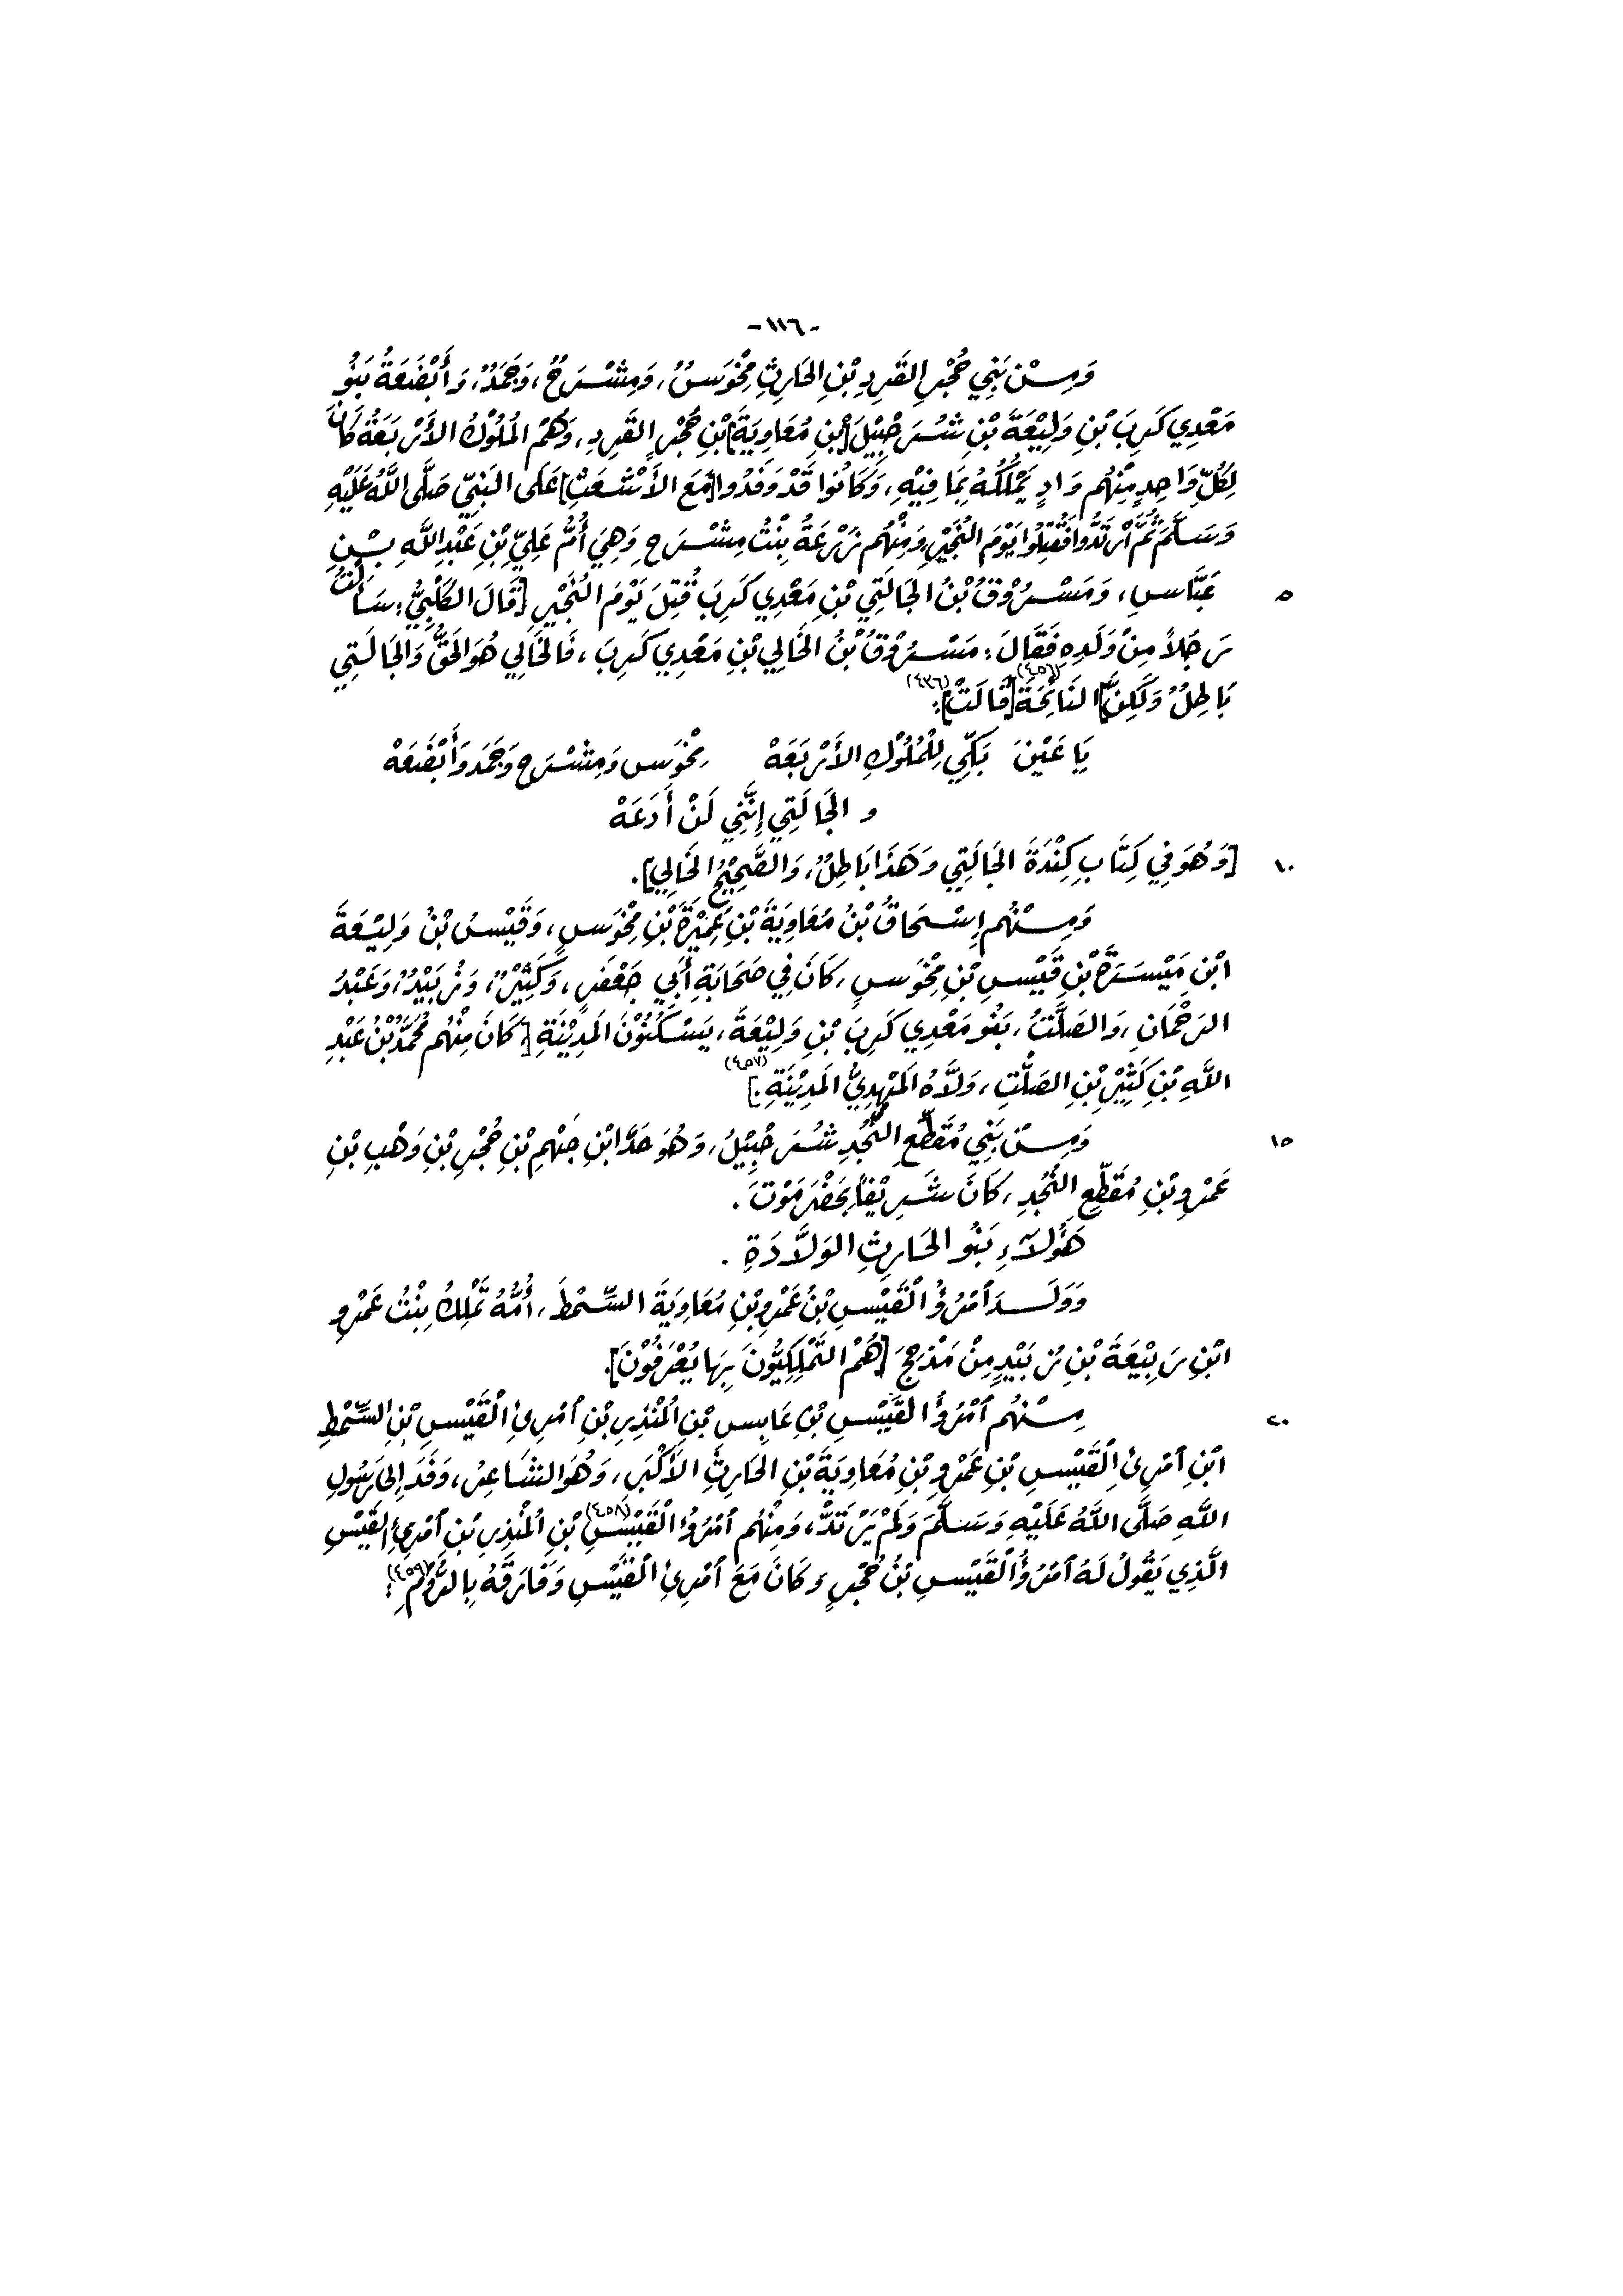 -١١٦-
وَمِنْ بَنِي حُجْرِ القَرِدِ بْنِ الحَارِثِ مِخْوَسٌ، وَمِشْرَحٌ، وَجَمَدٌ، وَأَبْضَعَةُ بَنُو
مَعْدِي كَرِبَ بْنِ وَلِيْعَةَ بْنِ شُرَحْبِيْلَ [بْنِ مُعَاوِيَةَ] بْنِ حُجْرِ القَرِدِ، وَهُمْ المُلُوْكُ الأَرْبَعَةُ كَانَ
لِكُلِّ وَاحِدٍ مِنْهُم وَادٍ يَمْلُكُهُ بِمَا فِيْهِ، وَكَانُوا قَدْ وَفَدُوا [مَعَ الأَشْعَثِ] عَلَى النَبِيِّ صَلَّى اللَّهُ عَلَيْهِ
وَسَلَّمَ ثُمَّ ٱرْتَدُّوا فَقُتِلُوا يَوْمَ النُجَيْرِ، وَمِنْهُم زَرْعَةُ بِنْتُ مِشْرَحٍ وَهِيَ أُمُّ عَلِيِّ بْنِ عَبْدِ اللَّهِ بْنِ
٥ عَبَّاسٍ، وَمَسْرُوْقُ بْنُ الجَالَتِي بْنِ مَعْدِي كَرِبَ قُتِلَ يَوْمَ النُجَيْرِ [قَالَ الكَلْبِيُّ: سَأَلْتُ
رَجُلاً مِنْ وَلَدِهِ فَقَالَ: مَسْرُوْقُ بْنُ الخَالِي بْنِ مَعْدِي كَرِبَ، فَالخَالِي هُوَ الحَقُّ وَالجَالَتِي
بَاطِلٌ وَلَكِنَّ] النَائِحَةَ (٤٥٦) [قَالَتْ] (٤٣٦):
يَا عَيْنَ بَكِّي لِلْمُلُوْكِ الأَرْبَعَهْ مِخْوَسِ وَمِشْرَحِ وَجَمَدِ وَأَبْضَعَهْ
و الجَالَتِي إِنَّنِي لَنْ أَدَعَهْ
١٠ [وَهُوَ فِي كِتَابِ كِنْدَةَ الجَالَتِي وَهَذَا بَاطِلٌ، وَالصَّحِيْحُ الخَالِي].
وَمِنْهُم إِسْحَاقُ بْنُ مُعَاوِيَةَ بْنِ عَمِيْرَةَ بْنِ مِخْوَسٍ، وَقَيْسُ بْنُ وَلِيْعَةَ
ابْنِ مَيْسَرَةَ بْنِ قَيْسِ بْنِ مِخْوَسٍ، كَانَ فِي صَحَابَةِ أَبِي جَعْفَرٍ، وَكَثِيْرٌ، وَزُبَيْدٌ، وَعَبْدُ
الرَحْمَانِ، وَالصَلْتُ، بَنُو مَعْدِي كَرِبَ بْنِ وَلِيْعَةَ، يَسْكُنُوْنَ المَدِيْنَةِ [كَانَ مِنْهُم مُحَمَّدُ بْنُ عَبْدِ
اللَّهِ بْنِ كَثِيْرِ بْنِ الصَلْتِ، وَلاَّهُ المَهْدِيُّ المَدِيْنَةِ.] (٤٥٧)
١٥ وَمِنْ بَنِي مُقَطِّعِ النُّجُدِ شُرَحْبِيْلُ، وَهُوَ حَدَّ ابْنِ جَهْمِ بْنِ حُجْرِ بْنِ وَهْبِ بْنِ
عَمْرِو بْنِ مُقَطِّعِ النُّجُدِ، كَانَ شَرِيْفاً بِحَضْرَمَوْتَ.
هَؤُلاَءِ بَنُو الحَارِثِ الوَلاَّدَةِ.
وَوَلَدَ ٱمْرُؤُ ٱلْقَيْسِ بْنُ عَمْرِو بْنِ مُعَاوِيَةَ السِّمْطَ، أُمُّهُ تَمْلِكُ بِنْتُ عَمْرِو
ابْنِ رَبِيْعَةَ بْنِ زُبَيْدٍ مِنْ مَذْحِجَ [هُمْ التَّمْلِكِيُّونَ بِهَا يُعْرَفُوْنَ].
٢٠ مِنْهُم ٱمْرُؤُ القَيْسِ بْنِ عَابِسِ بْنِ المُنْذِرِ بْنِ ٱمْرِئِ ٱلْقَيْسِ بْنِ السِّمْطِ
ابْنِ ٱمْرِئِ ٱلْقَيْسِ بْنِ عَمْرِو بْنِ مُعَاوِيَةَ بْنِ الحَارِثِ الأَكْبَرِ، وَهُوَ الشَاعِرُ، وَفَدَ إِلَى رَسُولِ
اللَّهِ صَلَّى اللَّهُ عَلَيْهِ وَسَلَّمَ وَلَمْ يَرْتَدَّ، وَمِنْهُم ٱمْرُؤُ ٱلْقَيْسِ (٤٥٨) بْنِ المُنْذِرِ بْنِ ٱمْرِئِ القَيْسِ
الَّذِي يَقُولُ لَهُ ٱمْرُؤُ ٱلْقَيْسِ بْنُ حُجْرٍ وَكَانَ مَعَ ٱمْرِئِ ٱلْقَيْسِ وَفَارَقَهُ بِالرُّوْمِ (٤٥٩):